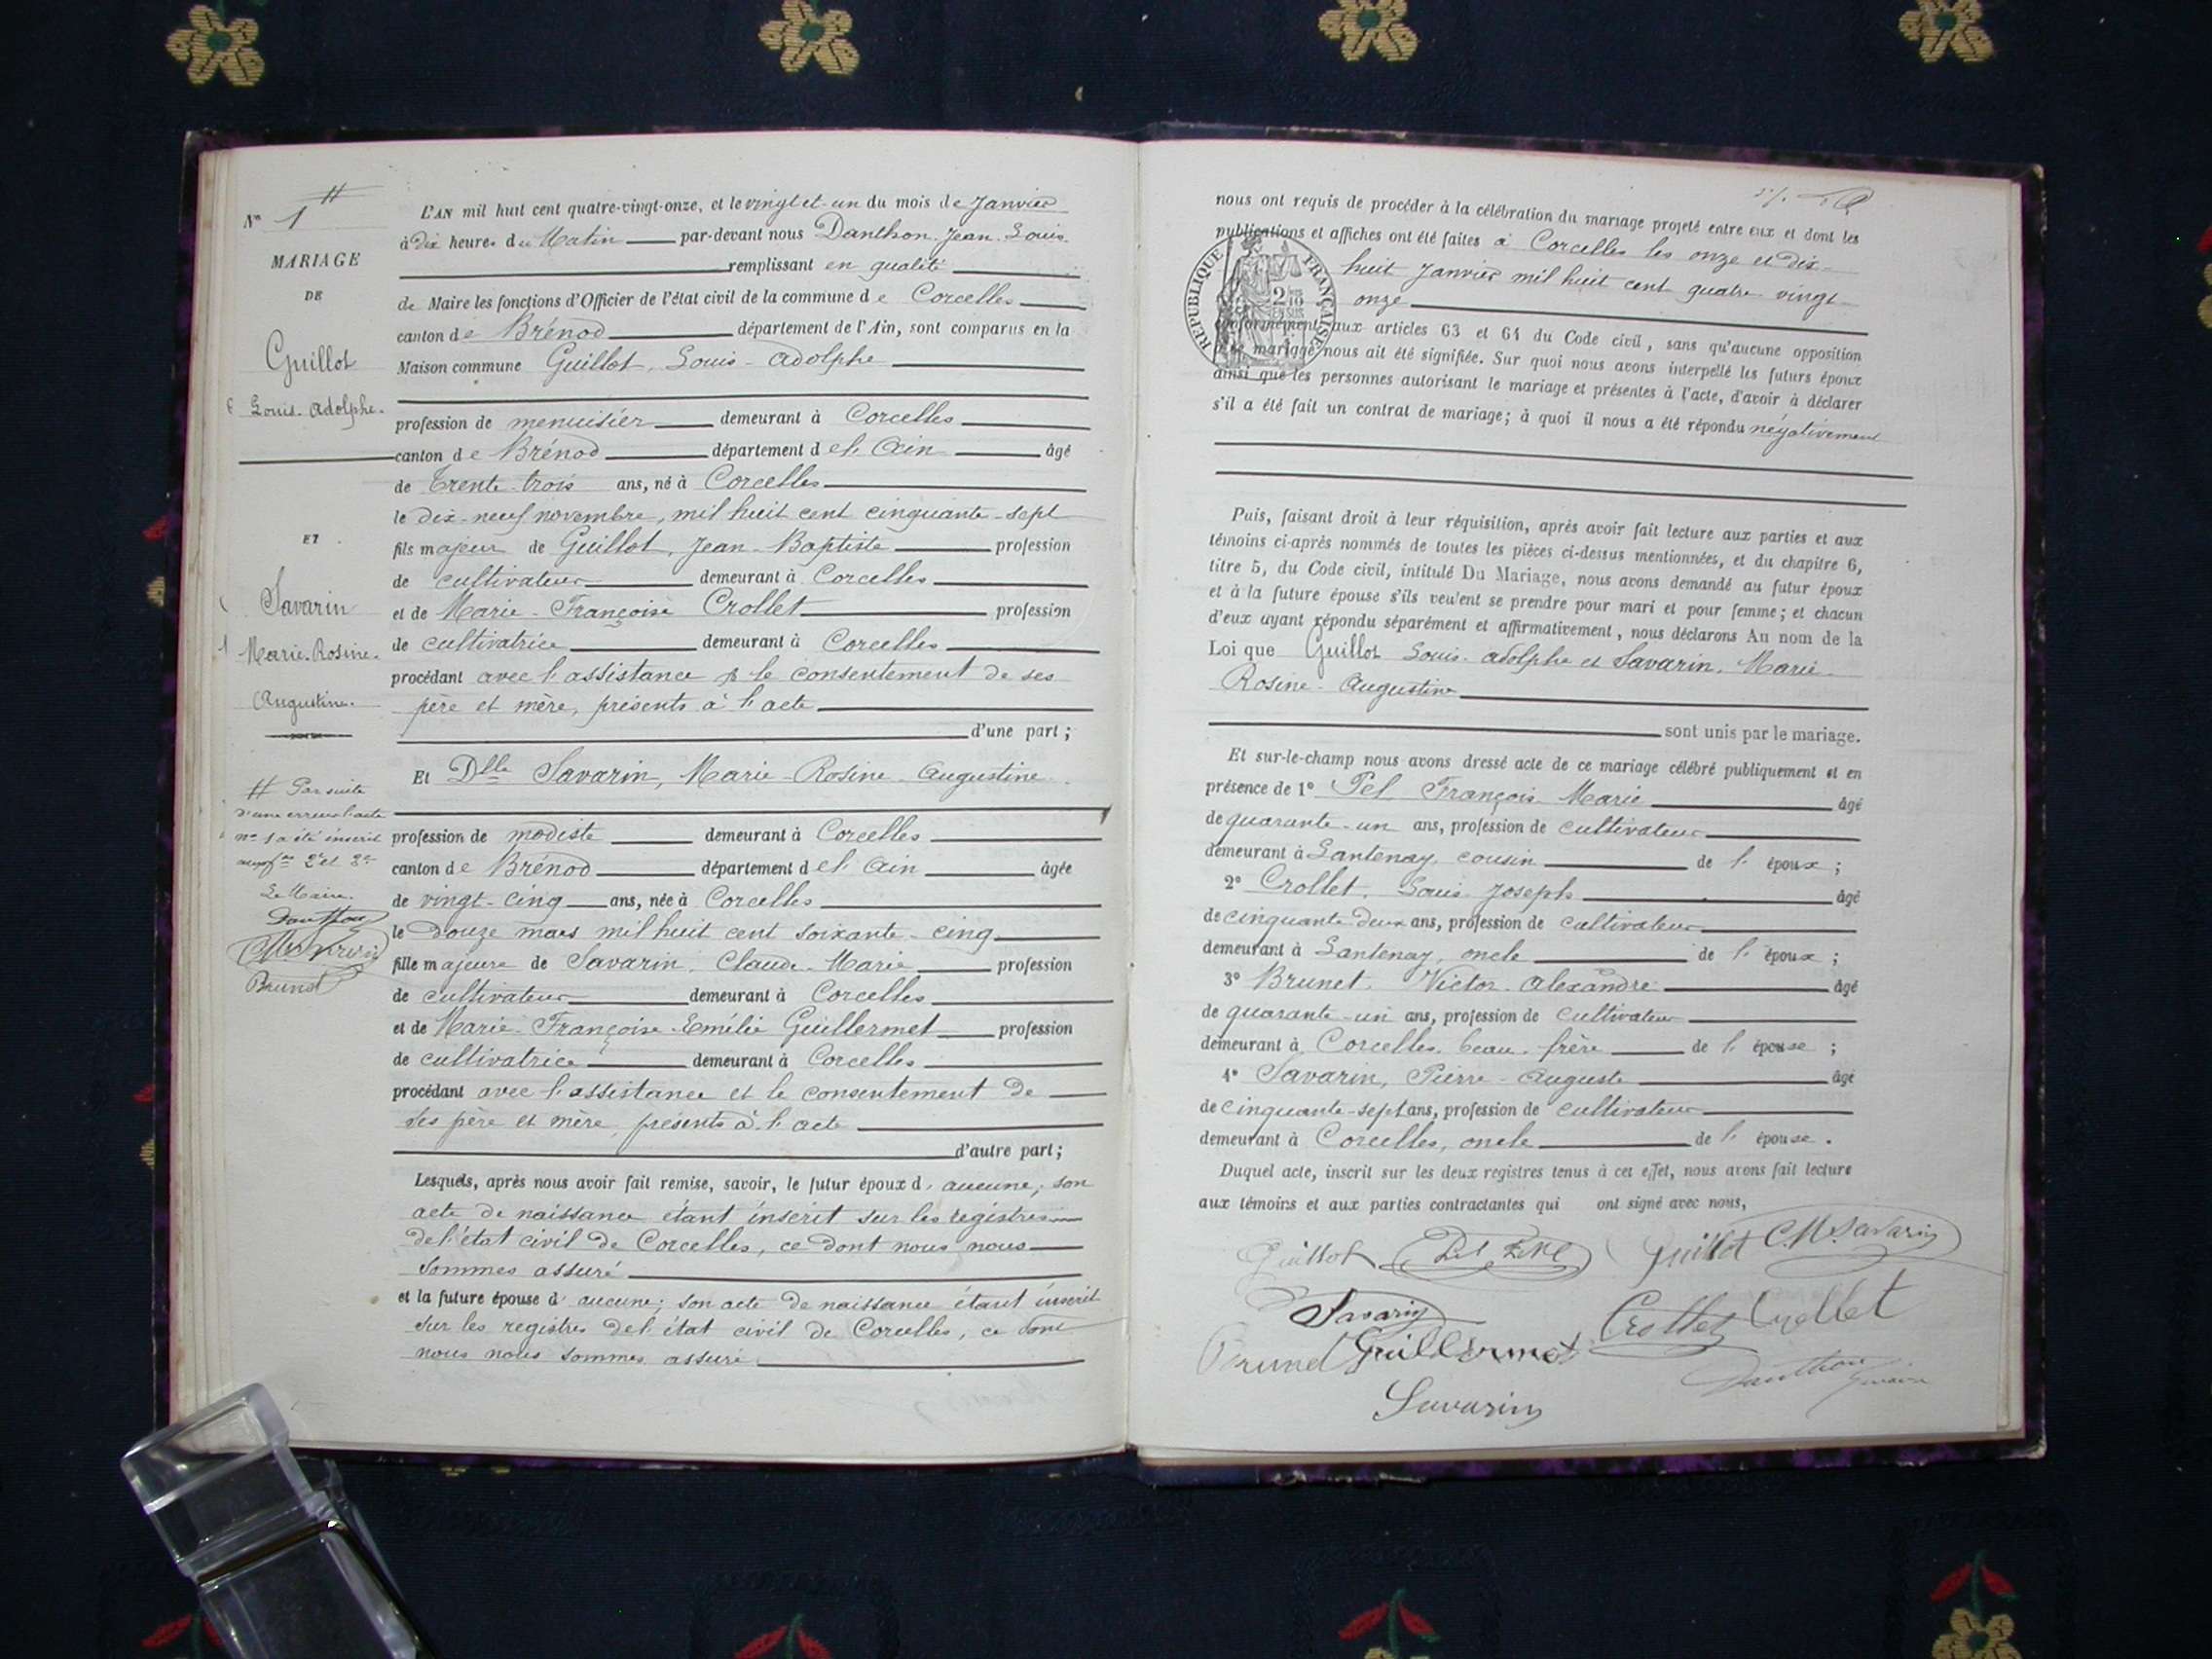 Nº 1 #
MARIAGE
DE
Guillot
Louis-Adolphe.
ET
Savarin
Marie-Rosine-
Augustine.
# Par suite
d'une erreur l'acte
nº 1 a été inscrit
aux fos 2 et 3
Le Maire.
Danthon
C.M. Savarin
Brunet
L'AN mil huit cent quatre-vingt-onze, et le vingt et un du mois de Janvier
à dix heures du Matin par-devant nous Danthon Jean-Louis
remplissant en qualité
de Maire les fonctions d'Officier de l'état civil de la commune de Corcelles
canton de Brénod département de l'Ain, sont comparus en la
Maison commune Guillot, Louis-Adolphe
profession de menuisier demeurant à Corcelles
canton de Brénod département de l'Ain âgé
de Trente-trois ans, né à Corcelles
le dix-neuf novembre, mil huit cent cinquante-sept
fils majeur de Guillot, Jean-Baptiste profession
de cultivateur demeurant à Corcelles
et de Marie-Françoise Crollet profession
de cultivatrice demeurant à Corcelles
procédant avec l'assistance & le consentement de ses
père et mère, présents à l'acte
d'une part ;
Et Dlle Savarin, Marie-Rosine-Augustine
profession de modiste demeurant à Corcelles
canton de Brénod département de l'Ain âgée
de vingt-cinq ans, née à Corcelles
le douze mars mil huit cent soixante-cinq
fille majeure de Savarin, Claude-Marie profession
de cultivateur demeurant à Corcelles
et de Marie-Françoise-Emélie Guillermet profession
de cultivatrice demeurant à Corcelles
procédant avec l'assistance et le consentement de
ses père et mère, présents à l'acte
d'autre part ;
Lesquels, après nous avoir fait remise, savoir, le futur époux d'aucune; son
acte de naissance étant inscrit sur les registres
de l'état civil de Corcelles, ce dont nous nous
sommes assuré
et la future épouse d'aucune; son acte de naissance étant inscrit
sur les registres de l'état civil de Corcelles, ce dont
nous nous sommes assuré
nous ont requis de procéder à la célébration du mariage projeté entre eux et dont les
publications et affiches ont été faites à Corcelles les onze et dix-
huit Janvier mil huit cent quatre vingt-
onze
RÉPUBLIQUE FRANÇAISE
2/10 EN SUS
conformément aux articles 63 et 64 du Code civil, sans qu'aucune opposition
mariage nous ait été signifiée. Sur quoi nous avons interpellé les futurs époux
ainsi que les personnes autorisant le mariage et présentes à l'acte, d'avoir à déclarer
s'il a été fait un contrat de mariage; à quoi il nous a été répondu négativement
Puis, faisant droit à leur réquisition, après avoir fait lecture aux parties et aux
témoins ci-après nommés de toutes les pièces ci-dessus mentionnées, et du chapitre 6,
titre 5, du Code civil, intitulé Du Mariage, nous avons demandé au futur époux
et à la future épouse s'ils veulent se prendre pour mari et pour femme; et chacun
d'eux ayant répondu séparément et affirmativement, nous déclarons Au nom de la
Loi que Guillot Louis-Adolphe et Savarin, Marie-
Rosine-Augustine
sont unis par le mariage.
Et sur-le-champ nous avons dressé acte de ce mariage célébré publiquement et en
présence de 1º Pel François Marie âgé
de quarante-un ans, profession de cultivateur
demeurant à Lantenay, cousin de l'époux ;
2º Crollet, Louis-Joseph âgé
de cinquante-deux ans, profession de cultivateur
demeurant à Lantenay, oncle de l'époux ;
3º Brunet, Victor-Alexandre âgé
de quarante-un ans, profession de cultivateur
demeurant à Corcelles, beau-frère de l'épouse ;
4º Savarin, Pierre-Auguste âgé
de cinquante-sept ans, profession de cultivateur
demeurant à Corcelles, oncle de l'épouse.
Duquel acte, inscrit sur les deux registres tenus à cet effet, nous avons fait lecture
aux témoins et aux parties contractantes qui ont signé avec nous,
Guillot Pel Guillot C.M. Savarin
Savarin Crollet Crollet
Brunet Guillermet Danthon
Savarin